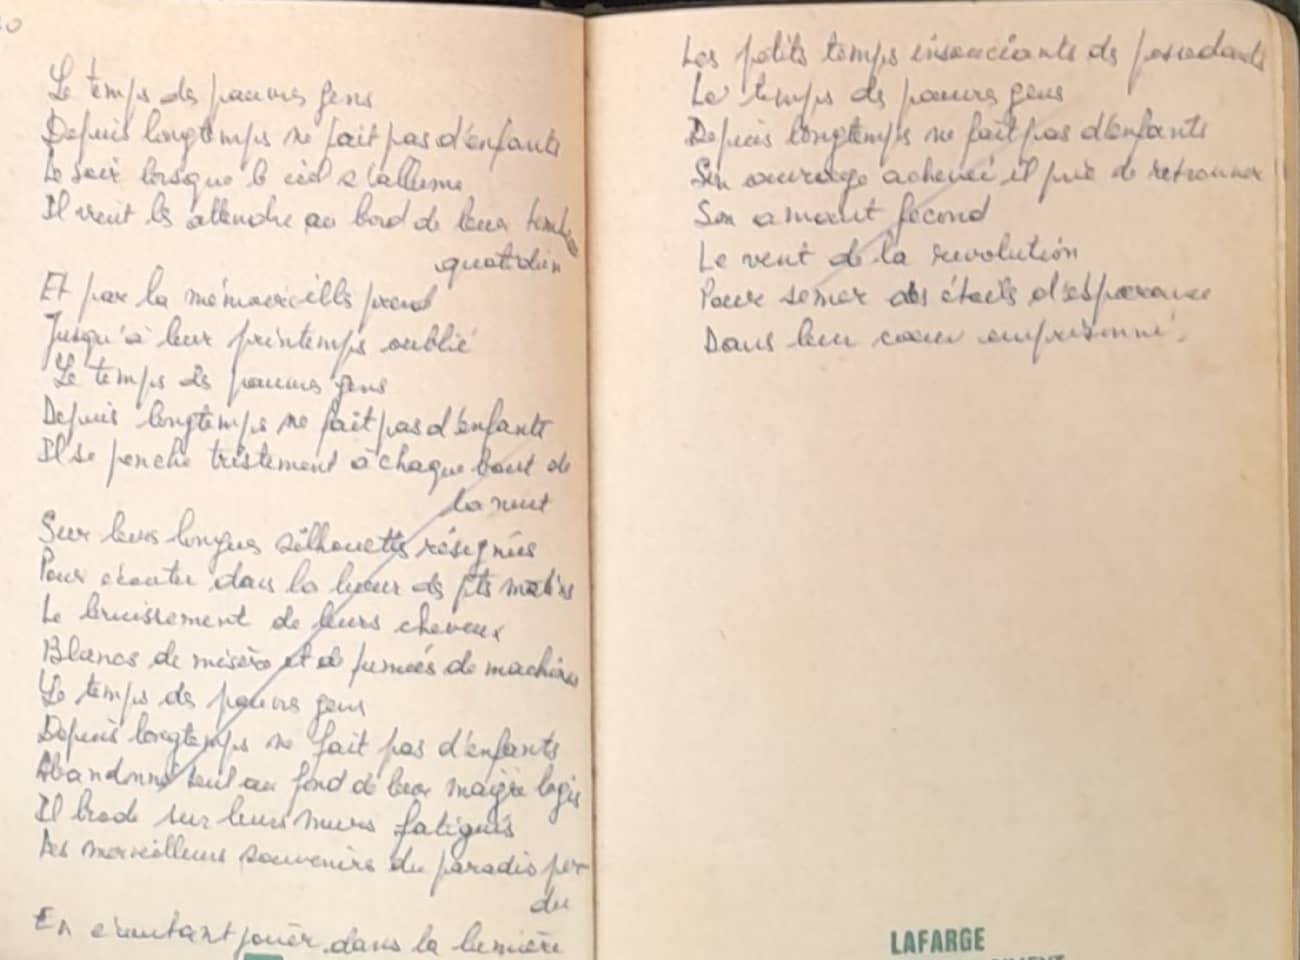 Le temps des pauvres gens
Depuis longtemps ne fait pas d'enfants
Le soir lorsque le ciel s'allume
Il vient les attendre au bord de leur tombeau
quotidien
Et par la mémoire ils prend
Jusqu'à leur printemps oublié
Le temps des pauvres gens
Depuis longtemps ne fait pas d'enfants
Il se penche tristement à chaque bout de
la nuit
Sur leurs longues silhouettes résignées
Pour écouter dans la lueur des pts matins
Le bruissement de leurs cheveux
Blancs de misère et de fumées de machines
Le temps des pauvres gens
Depuis longtemps ne fait pas d'enfants
Abandonné seul au fond de leur maigre logis
Il brode sur leurs murs fatigués
Des merveilleux souvenirs du paradis per
du
En écoutant jouer dans la lumière
Les petits temps insouciants des possédants
Le temps des pauvres gens
Depuis longtemps ne fait pas d'enfants
Son ouvrage achevé il prie de retrouver
Son amant fécond
Le vent de la revolution
Pour semer des étoiles d'espérance
Dans leur coeur emprisonné.
LAFARGE